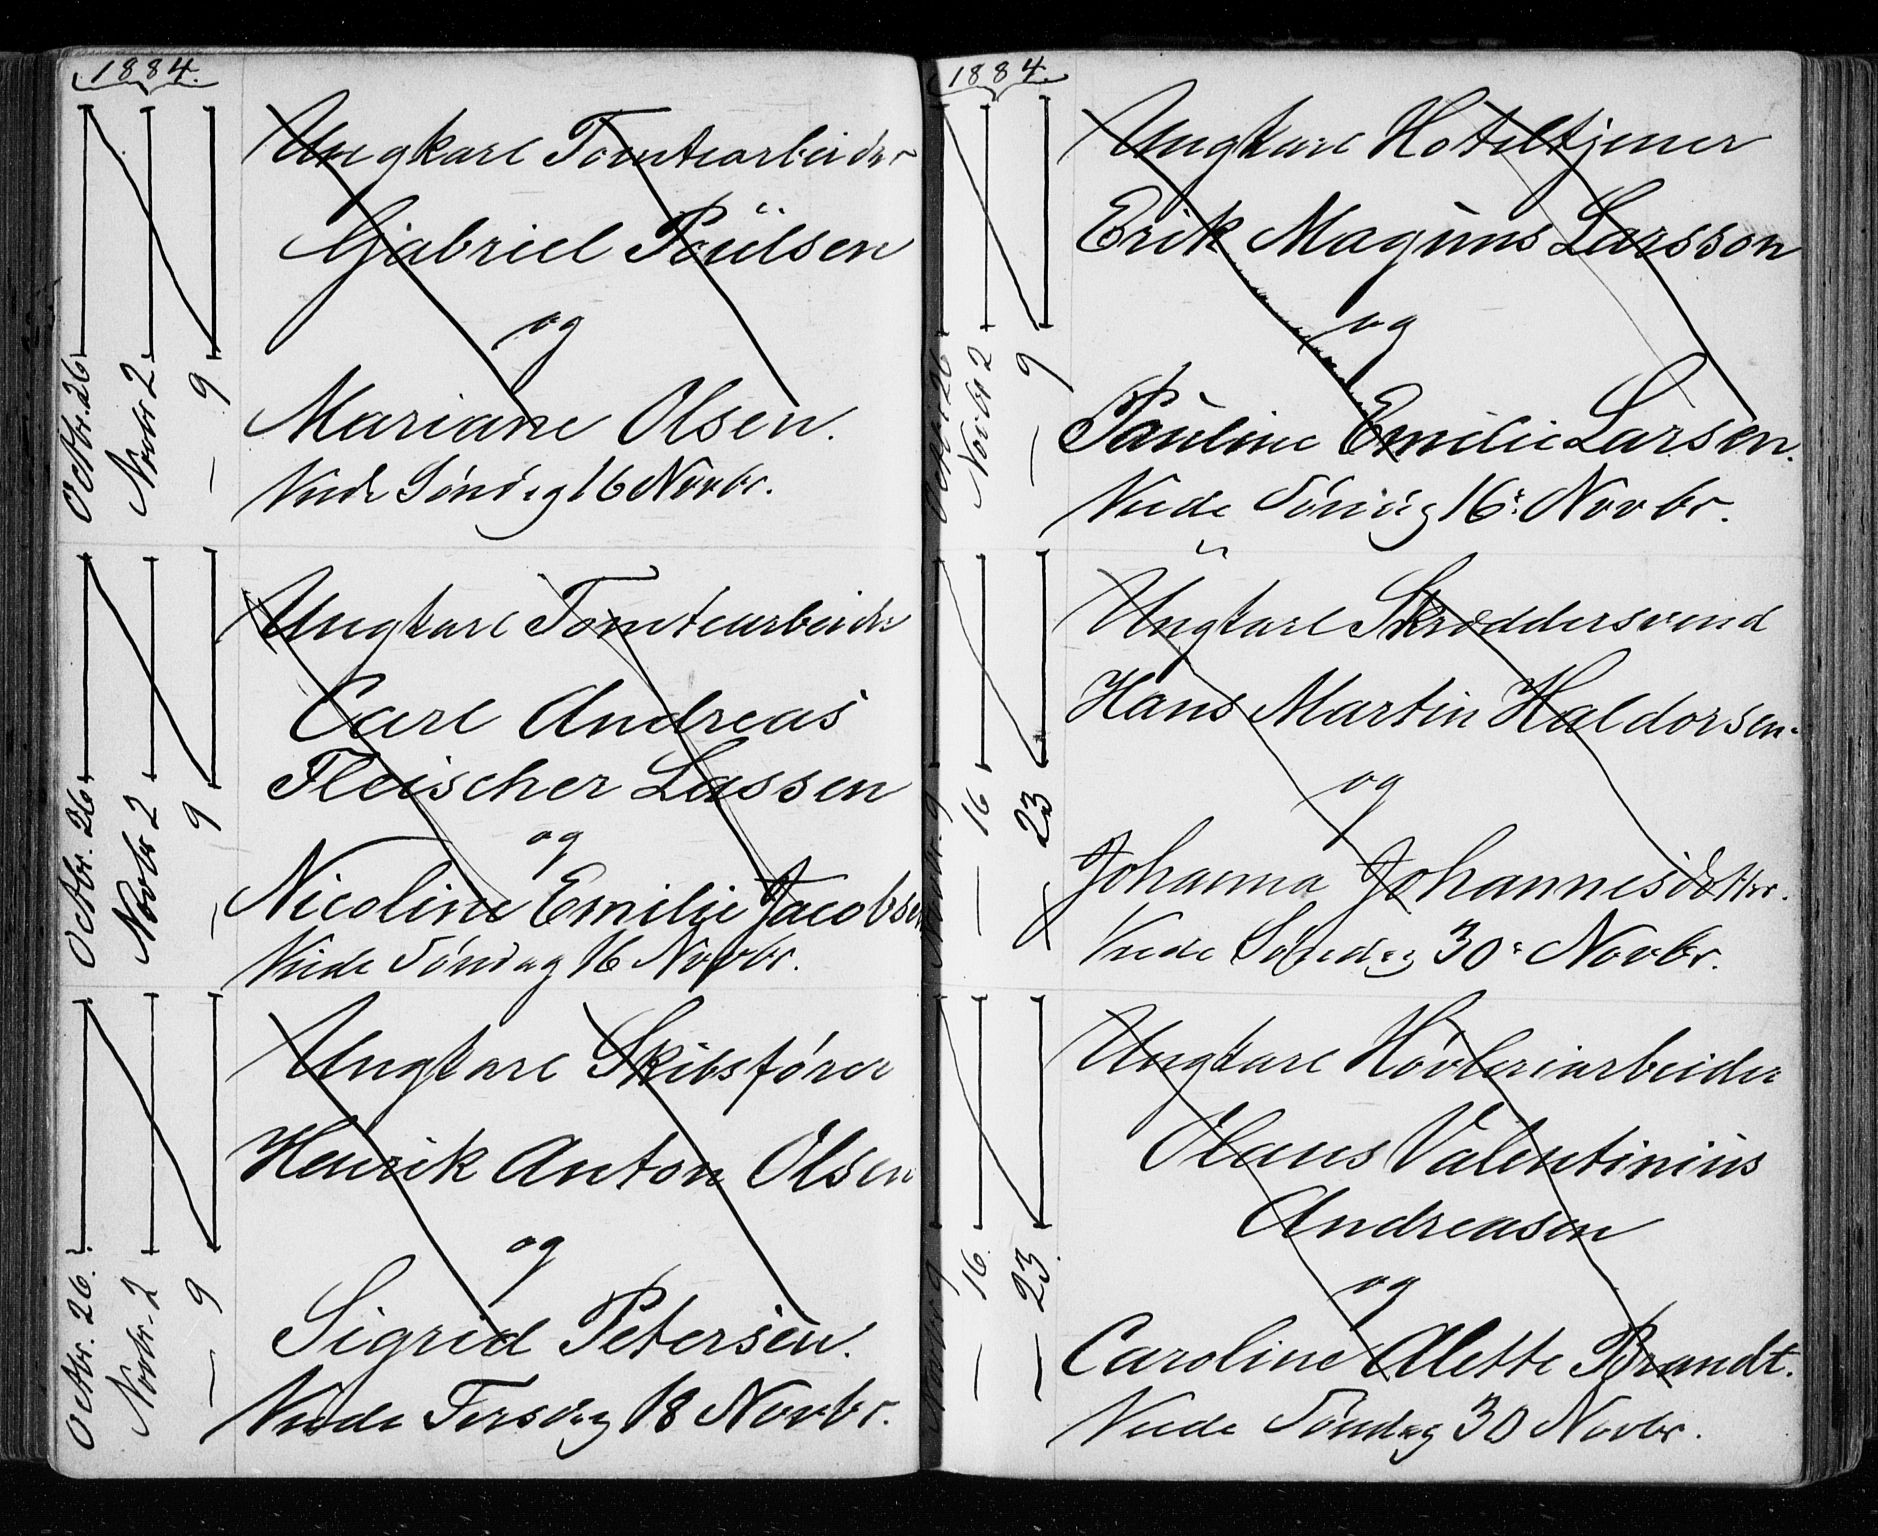 1884.
Octbr. 26
Novbr 2
— 9
Ungkarl Tomtearbeider
Gabriel Poülsen
og
Mariane Olsen.
Viede Söndag 16 Novbr.
Octbr. 26
Novbr 2
— 9
Ungkarl Tomtearbeider
Carl Andreas
Fleischer Lassen
og
Nicoline Emilie Jacobsen
Viede Söndag 16 Novbr.
Octbr. 26.
Novbr. 2
— 9
Ungkarl Skibsfører
Henrik Anton Olsen
og
Sigrid Petersen.
Viede Tirsdag 18 Novbr.
1884.
Octbr 26
Novbr 2
— 9
Ungkarl Hoteltjener
Erik Magnus Larsson
og
Pauline Emilie Larsen.
Viede Söndag 16: Novbr.
Novbr. 9
— 16
— 23
Üngkarl Skræddersvend
Hans Martin Haldorsen.
og
Johanna Johannesdatter.
Viede Söndag 30: Novbr.
Novbr. 9
— 16.
— 23.
Ungkarl Høvleriarbeider
Olaus Valentinius
Andreasen
og
Caroline Alette Brandt.
Viede Söndag 30 Novbr.